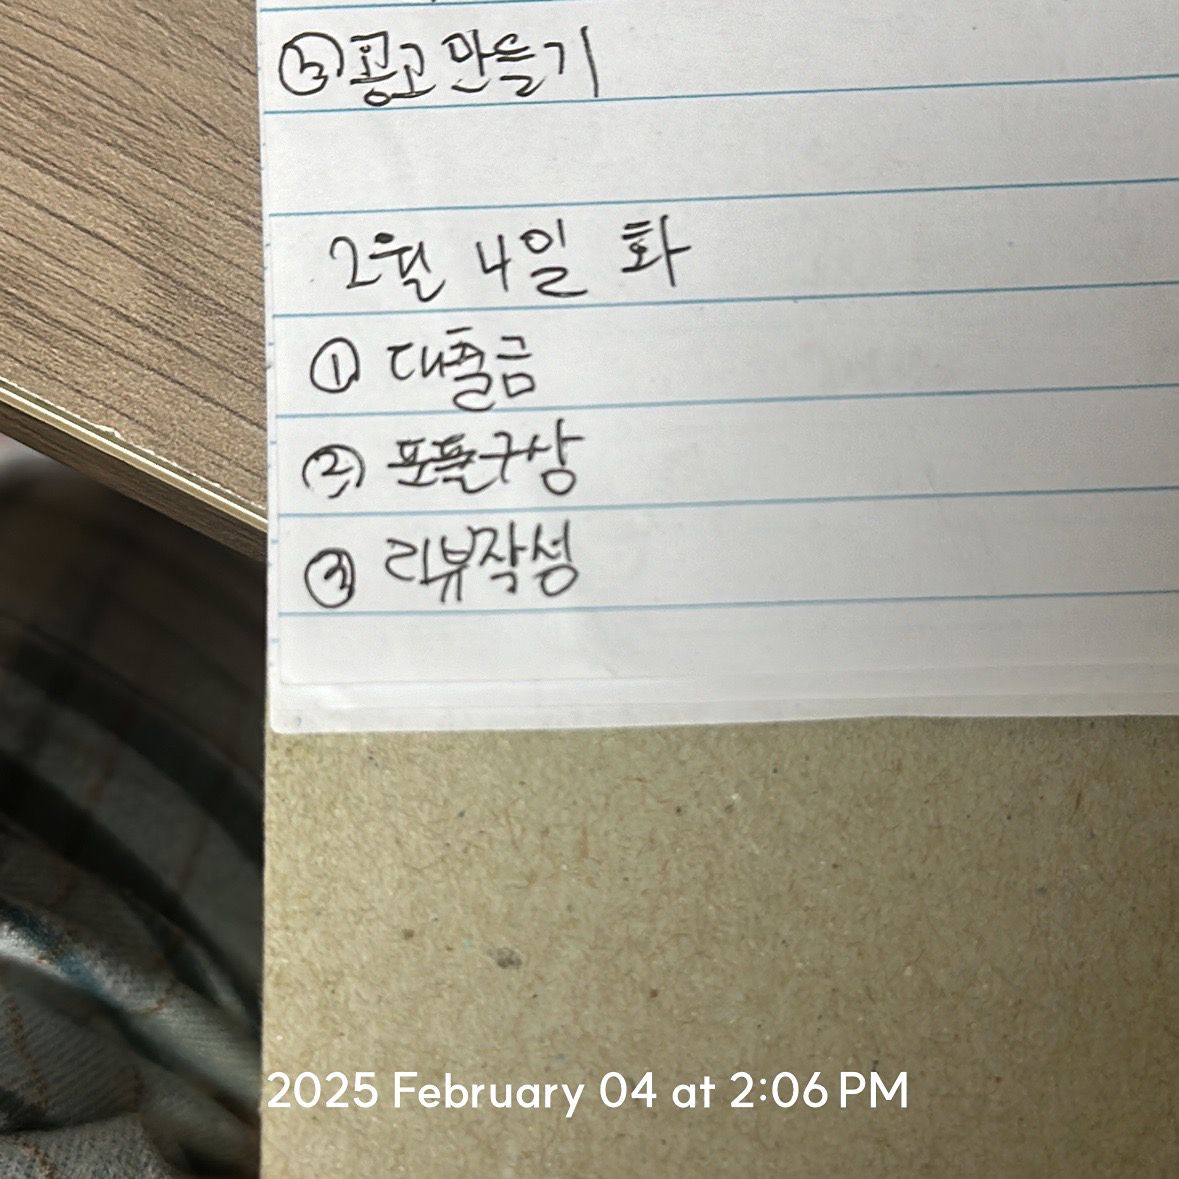 ⑤ 콩고만들기
2월 4일 화
① 대출금
② 포폴구상
③ 리뷰작성
2025 February 04 at 2:06 PM